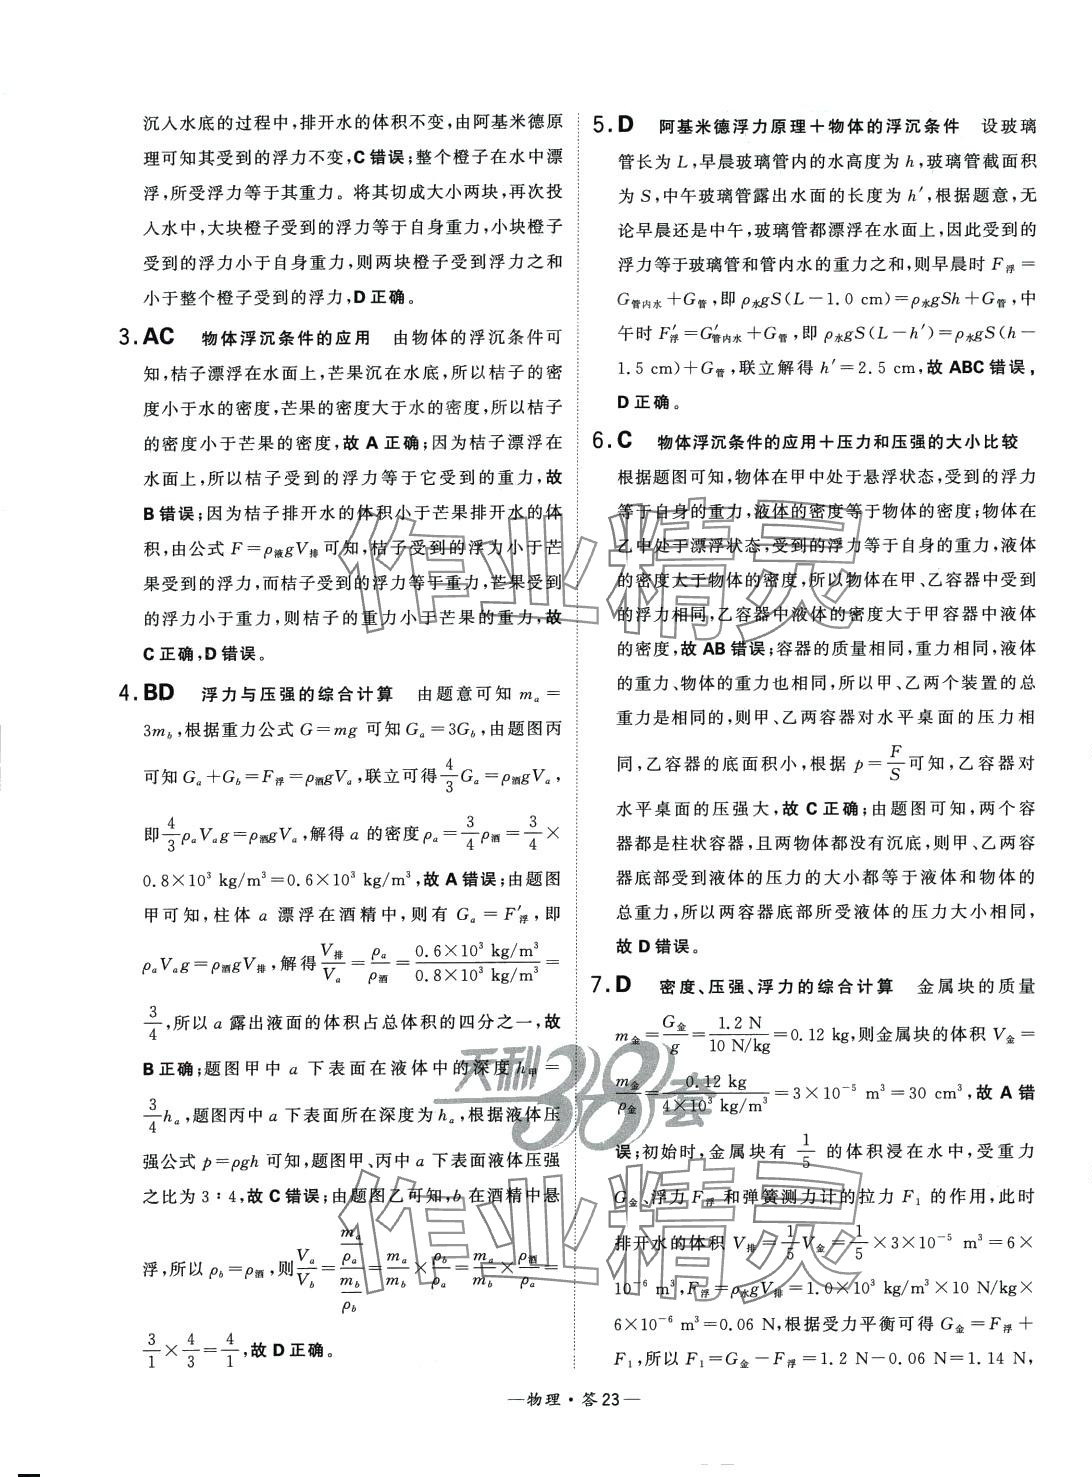 沉入水底的过程中,排开水的体积不变,由阿基米德原
理可知其受到的浮力不变,C错误;整个橙子在水中漂
浮,所受浮力等于其重力。将其切成大小两块,再次投
入水中,大块橙子受到的浮力等于自身重力,小块橙子
受到的浮力小于自身重力,则两块橙子受到浮力之和
小于整个橙子受到的浮力,D正确。
3. AC 物体浮沉条件的应用 由物体的浮沉条件可
知,桔子漂浮在水面上,芒果沉在水底,所以桔子的密
度小于水的密度,芒果的密度大于水的密度,所以桔子
的密度小于芒果的密度,故A正确;因为桔子漂浮在
水面上,所以桔子受到的浮力等于它受到的重力,故
B错误;因为桔子排开水的体积小于芒果排开水的体
积,由公式 F=ρ液gV排 可知,桔子受到的浮力小于芒
果受到的浮力,而桔子受到的浮力等于重力,芒果受到
的浮力小于重力,则桔子的重力小于芒果的重力,故
C正确,D错误。
4. BD 浮力与压强的综合计算 由题意可知 mₐ=
3m_b,根据重力公式 G=mg 可知 Gₐ=3G_b,由题图丙
可知 Gₐ+G_b=F浮=ρ酒gVₐ,联立可得 4/3 Gₐ=ρ酒gVₐ,
即 4/3 ρₐVₐg=ρ酒gVₐ,解得 a 的密度 ρₐ=3/4 ρ酒=3/4×
0.8×10³ kg/m³=0.6×10³ kg/m³,故A错误;由题图
甲可知,柱体 a 漂浮在酒精中,则有 Gₐ=F′浮,即
ρₐVₐg=ρ酒gV排,解得 V排/Vₐ=ρₐ/ρ酒=(0.6×10³ kg/m³)/(0.8×10³ kg/m³)=
3/4,所以 a 露出液面的体积占总体积的四分之一,故
B正确;题图甲中 a 下表面在液体中的深度 h甲=
3/4 hₐ,题图丙中 a 下表面所在深度为 hₐ,根据液体压
强公式 p=ρgh 可知,题图甲、丙中 a 下表面液体压强
之比为 3∶4,故C错误;由题图乙可知,b 在酒精中悬
浮,所以 ρ_b=ρ酒,则 Vₐ/V_b=(mₐ/ρₐ)/(m_b/ρ_b)=mₐ/m_b×ρ_b/ρₐ=mₐ/m_b×ρ酒/ρₐ=
3/1×4/3=4/1,故D正确。
5. D 阿基米德浮力原理+物体的浮沉条件 设玻璃
管长为 L,早晨玻璃管内的水高度为 h,玻璃管截面积
为 S,中午玻璃管露出水面的长度为 h′,根据题意,无
论早晨还是中午,玻璃管都漂浮在水面上,因此受到的
浮力等于玻璃管和管内水的重力之和,则早晨时 F浮=
G管内水+G管,即 ρ水gS(L-1.0 cm)=ρ水gSh+G管,中
午时 F′浮=G′管内水+G管,即 ρ水gS(L-h′)=ρ水gS(h-
1.5 cm)+G管,联立解得 h′=2.5 cm,故ABC错误,
D正确。
6. C 物体浮沉条件的应用+压力和压强的大小比较
根据题图可知,物体在甲中处于悬浮状态,受到的浮力
等于自身的重力,液体的密度等于物体的密度;物体在
乙中处于漂浮状态,受到的浮力等于自身的重力,液体
的密度大于物体的密度,所以物体在甲、乙容器中受到
的浮力相同,乙容器中液体的密度大于甲容器中液体
的密度,故AB错误;容器的质量相同,重力相同,液体
的重力、物体的重力也相同,所以甲、乙两个装置的总
重力是相同的,则甲、乙两容器对水平桌面的压力相
同,乙容器的底面积小,根据 p=F/S 可知,乙容器对
水平桌面的压强大,故C正确;由题图可知,两个容
器都是柱状容器,且两物体都没有沉底,则甲、乙两容
器底部受到液体的压力的大小都等于液体和物体的
总重力,所以两容器底部所受液体的压力大小相同,
故D错误。
7. D 密度、压强、浮力的综合计算 金属块的质量
m金=G金/g=1.2 N/(10 N/kg)=0.12 kg,则金属块的体积 V金=
m金/ρ金=0.12 kg/(4×10³ kg/m³)=3×10⁻⁵ m³=30 cm³,故A错
误;初始时,金属块有 1/5 的体积浸在水中,受重力
G金、浮力 F浮 和弹簧测力计的拉力 F₁ 的作用,此时
排开水的体积 V排=1/5 V金=1/5×3×10⁻⁵ m³=6×
10⁻⁶ m³,F浮=ρ水gV排=1.0×10³ kg/m³×10 N/kg×
6×10⁻⁶ m³=0.06 N,根据受力平衡可得 G金=F浮+
F₁,所以 F₁=G金-F浮=1.2 N-0.06 N=1.14 N,
作业精灵
天利38套
作业精灵
—物理·答23—